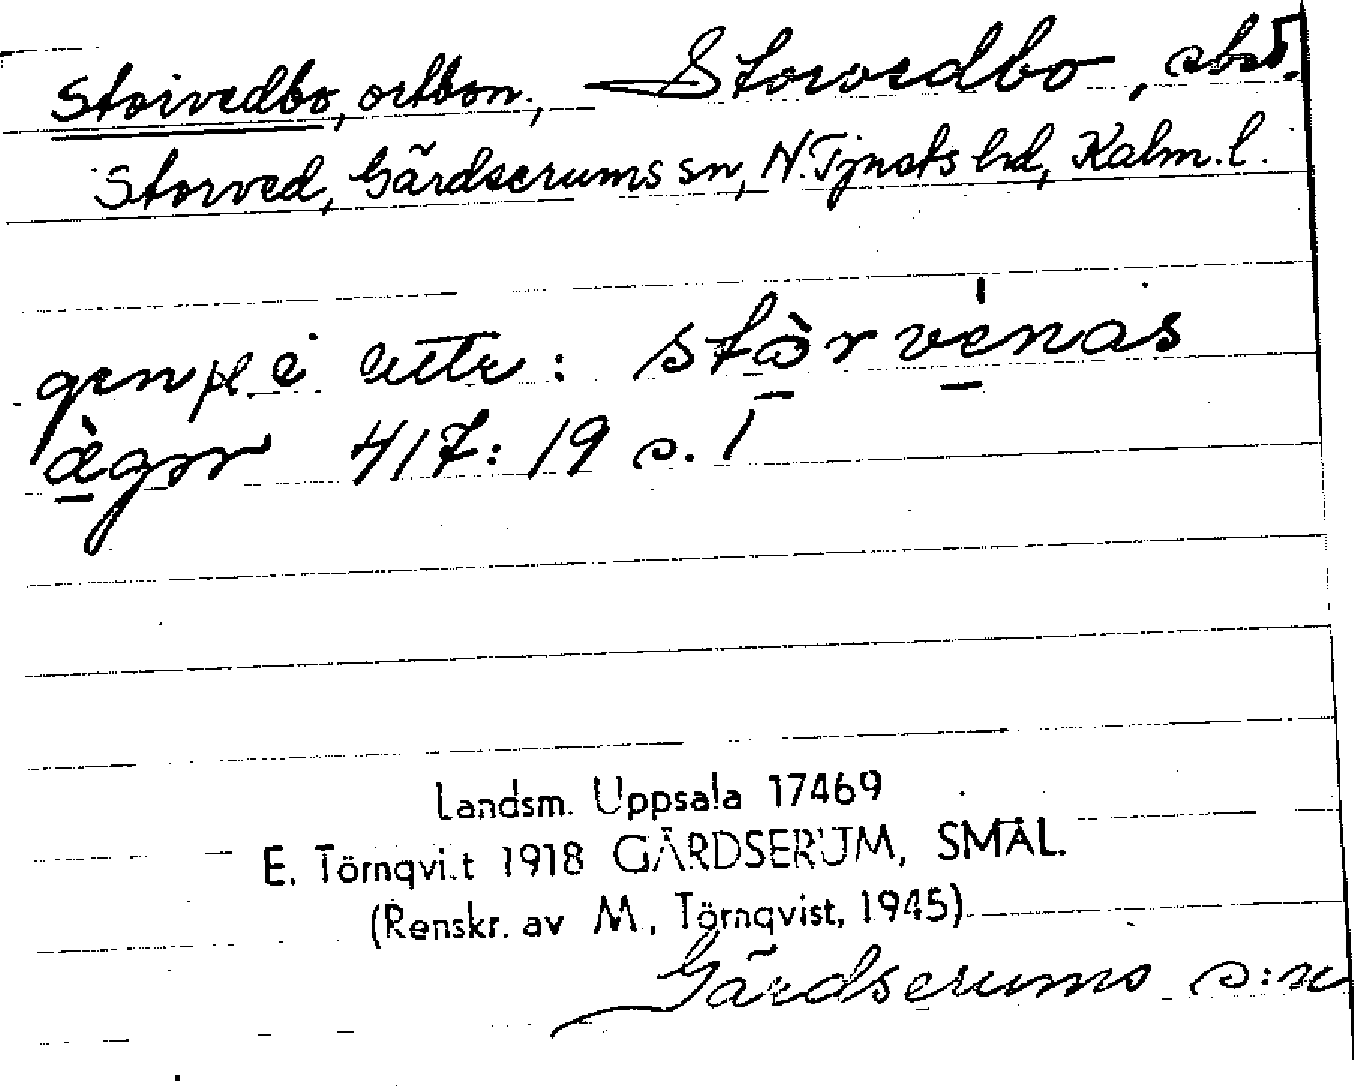 Storvedbo, ortbon., Storvedbo, sbst.
Storved, Gärdserums sn, N. Tjusts hd, Kalm. l.
gen pl i uttr: stòrvénas
àgor 417:19 s. 1
Landsm. Uppsala 17469
E. Törnqvist 1918 GÄRDSERUM, SMÅL.
(Renskr. av M. Törnqvist, 1945)
Gärdserums s:n